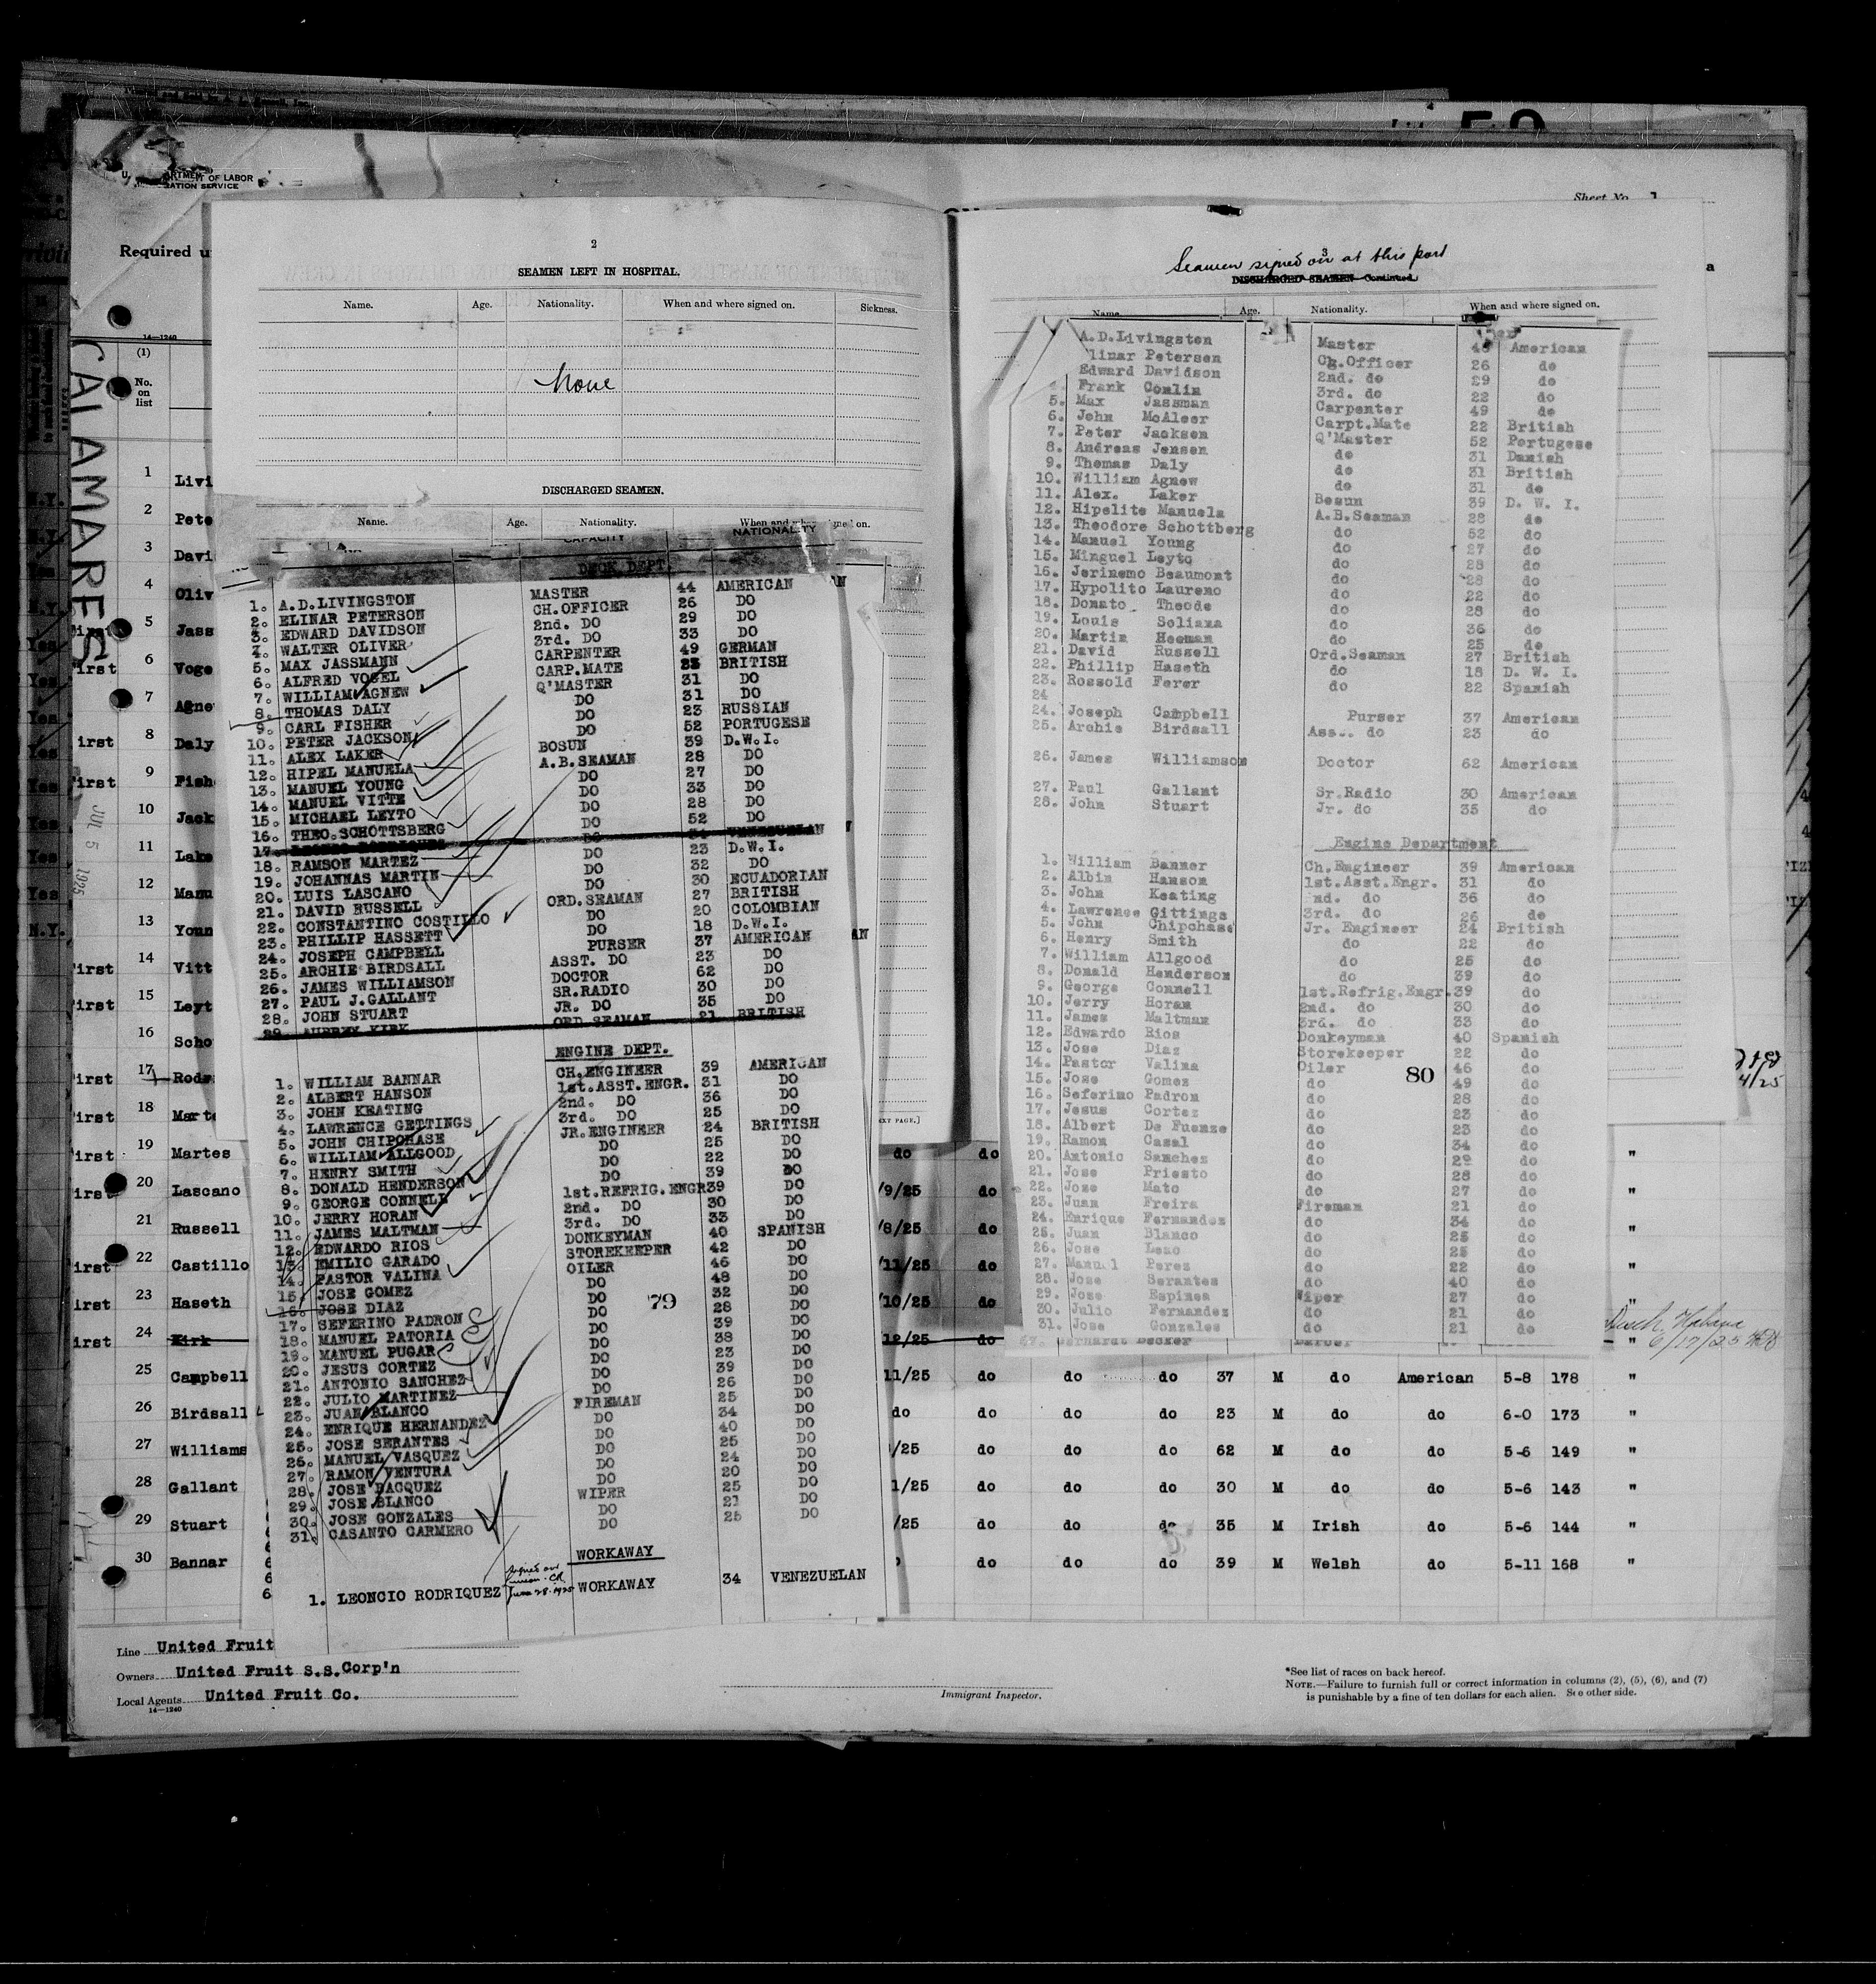 U. DEPARTMENT OF LABOR
IMMIGRATION SERVICE
Sheet No. 1
Required u
14—1240
(1)
No. on list
CALAMARES
JUL 5 1925
1 Livi
2 Pete
3 Davi
4 Oliv
5 Jass
6 Voge
7 Agne
8 Daly
9 Fish
10 Jack
11 Lake
12 Manu
13 Youn
14 Vitt
15 Leyt
16 Scho
17 Rodr
18 Marte
19 Martes
20 Lascano
21 Russell
22 Castillo
23 Haseth
24 Kirk
25 Campbell
26 Birdsall
27 Williams
28 Gallant
29 Stuart
30 Bannar
2
SEAMEN LEFT IN HOSPITAL.
Name. Age. Nationality. When and where signed on. Sickness.
None
DISCHARGED SEAMEN.
Name. Age. Nationality. When and where signed on.
CAPACITY NATIONALITY
DECK DEPT.
1. A.D.LIVINGSTON MASTER 44 AMERICAN
2. ELINAR PETERSON CH.OFFICER 26 DO
3. EDWARD DAVIDSON 2nd. DO 29 DO
4. WALTER OLIVER 3rd. DO 33 DO
5. MAX JASSMANN CARPENTER 49 GERMAN
6. ALFRED VOGEL CARP.MATE 23 BRITISH
7. WILLIAM AGNEW Q'MASTER 31 DO
8. THOMAS DALY DO 31 DO
9. CARL FISHER DO 23 RUSSIAN
10. PETER JACKSON DO 52 PORTUGESE
11. ALEX LAKER BOSUN 39 D.W.I.
12. HIPEL MANUELA A.B.SEAMAN 28 DO
13. MANUEL YOUNG DO 27 DO
14. MANUEL VITTE DO 33 DO
15. MICHAEL LEYTO DO 28 DO
16. THEO.SCHOTTSBERG DO 52 DO
17. LEONSO RODRIQUEZ DO 34 VENEZUELAN
18. RAMSON MARTEZ DO 23 D.W.I.
19. JOHANNAS MARTIN DO 32 DO
20. LUIS LASCANO DO 30 ECUADORIAN
21. DAVID RUSSELL ORD.SEAMAN 27 BRITISH
22. CONSTANTINO COSTILLO DO 20 COLOMBIAN
23. PHILLIP HASSETT DO 18 D.W.I.
24. JOSEPH CAMPBELL PURSER 37 AMERICAN
25. ARCHIE BIRDSALL ASST. DO 23 DO
26. JAMES WILLIAMSON DOCTOR 62 DO
27. PAUL J.GALLANT SR.RADIO 30 DO
28. JOHN STUART JR. DO 35 DO
29. AUBREY KIRK ORD.SEAMAN 21 BRITISH
ENGINE DEPT.
1. WILLIAM BANNAR CH.ENGINEER 39 AMERICAN
2. ALBERT HANSON 1st.ASST.ENGR. 31 DO
3. JOHN KEATING 2nd. DO 36 DO
4. LAWRENCE GETTINGS 3rd. DO 25 DO
5. JOHN CHIPCHASE JR.ENGINEER 24 BRITISH
6. WILLIAM ALLGOOD DO 25 DO
7. HENRY SMITH DO 22 DO
8. DONALD HENDERSON DO 39 DO
9. GEORGE CONNELL 1st.REFRIG.ENGR 39 DO
10. JERRY HORAN 2nd. DO 30 DO
11. JAMES MALTMAN 3rd. DO 33 DO
12. EDWARDO RIOS DONKEYMAN 40 SPANISH
13. EMILIO GARADO STOREKEEPER 42 DO
14. PASTOR VALINA OILER 46 DO
15. JOSE GOMEZ DO 48 DO
16. JOSE DIAZ DO 32 DO
17. SEFERINO PADRON DO 28 DO
18. MANUEL PATORIA DO 39 DO
19. MANUEL PUGAR DO 38 DO
20. JESUS CORTEZ DO 23 DO
21. ANTONIO SANCHEZ DO 39 DO
22. JULIO MARTINEZ DO 26 DO
23. JUAN BLANCO FIREMAN 25 DO
24. ENRIQUE HERNANDEZ DO 34 DO
25. JOSE SERANTES DO 40 DO
26. MANUEL VASQUEZ DO 25 DO
27. RAMON VENTURA DO 24 DO
28. JOSE BACQUEZ DO 20 DO
29. JOSE BLANCO WIPER 25 DO
30. JOSE GONZALES DO 21 DO
31. CASANTO CARMERO DO 25 DO
79
WORKAWAY
1. LEONCIO RODRIQUEZ WORKAWAY 34 VENEZUELAN
June 28. 1925
3
Seamen signed on at this port
DISCHARGED SEAMEN—Continued.
Name. Age. Nationality. When and where signed on.
A.D.Livingston Master American
linar Petersen Cg.Officer 26 do
Edward Davidson 2nd. do 29 do
Frank Comlin 3rd. do 22 do
5. Max Jassman Carpenter 49 do
6. John McAleer Carpt.Mate 22 British
7. Peter Jackson Q'Master 52 Portugese
8. Andreas Jensen do 31 Danish
9. Thomas Daly do 31 British
10. William Agnew do 31 do
11. Alex. Laker Bosun 39 D. W. I.
12. Hipolito Manuela A.B.Seaman 28 do
13. Theodore Schottberg do 52 do
14. Manuel Young do 27 do
15. Minguel Leyto do 28 do
16. Jerinemo Beaumont do 28 do
17. Hypolito Laureno do 22 do
18. Donato Theode do 28 do
19. Louis Soliana do 36 do
20. Martin Heeman do 25 do
21. David Russell Ord.Seaman 27 British
22. Phillip Haseth do 18 D. W. I.
23. Rossold Ferer do 22 Spanish
24
24. Joseph Campbell Purser 37 American
25. Archie Birdsall Ass.. do 23 do
26. James Williamson Doctor 62 American
27. Paul Gallant Sr.Radio 30 American
28. John Stuart Jr. do 35 do
Engine Department
1. William Banner Ch.Engineer 39 American
2. Albin Hanson 1st.Asst.Engr. 31 do
3. John Keating 2nd. do 36 do
4. Lawrence Gittings 3rd. do 26 do
5. John Chipchase Jr. Engineer 24 British
6. Henry Smith do 22 do
7. William Allgood do 25 do
8. Donald Henderson do 39 do
9. George Connell 1st.Refrig.Engr. 39 do
10. Jerry Horan 2nd. do 30 do
11. James Maltman 3rd. do 33 do
12. Edwardo Rios Donkeyman 40 Spanish
13. Jose Diaz Storekeeper 22 do
14. Pastor Valina Oiler 46 do
15. Jose Gomez do 49 do
16. Seferino Padron do 28 do
17. Jesus Cortez do 23 do
18. Albert De Fuenze do 23 do
19. Ramon Casal do 34 do
20. Antonio Sanchez do 29 do
21. Jose Priesto do 28 do
22. Jose Mato do 27 do
23. Juan Freira Fireman 21 do
24. Enrique Fernandez do 34 do
25. Juan Blanco do 25 do
26. Jose Lezo do 25 do
27. Manuel Perez do 22 do
28. Jose Serantes do 40 do
29. Jose Espinea Wiper 27 do
30. Julio Fernandez do 21 do
31. Jose Gonzales do 21 do
80
Gerhardt Becker
Habana
6/17/25
11/25 do do do 37 M do American 5-8 178 "
do do do do 23 M do do 6-0 173 "
/25 do do do 62 M do do 5-6 149 "
1/25 do do do 30 M do do 5-6 143 "
/25 do do do 35 M Irish do 5-6 144 "
do do do 39 M Welsh do 5-11 168 "
Line United Fruit
Owners United Fruit S.S.Corp'n
Local Agents United Fruit Co.
14—1240
Immigrant Inspector.
*See list of races on back hereof.
NOTE.—Failure to furnish full or correct information in columns (2), (5), (6), and (7)
is punishable by a fine of ten dollars for each alien. See other side.